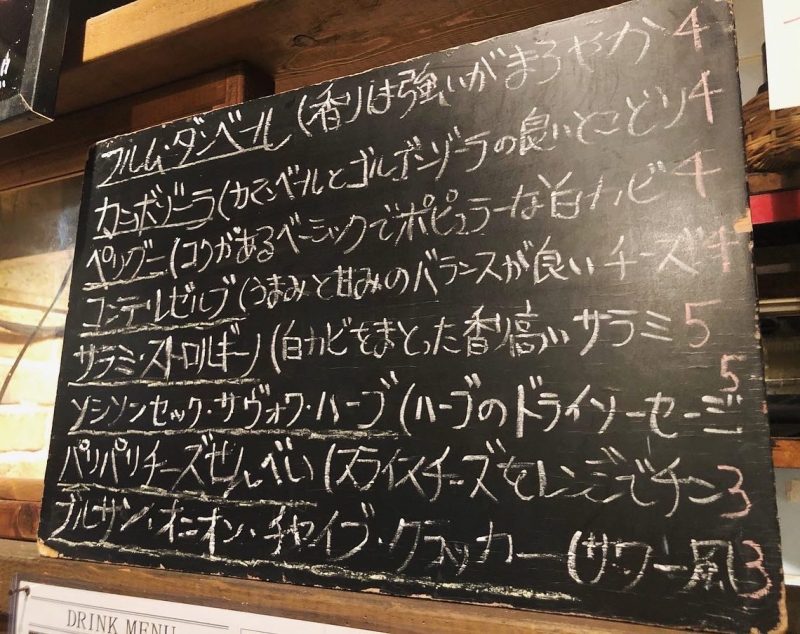 フルム・ダンベール (香りは強いがまろやか 4
カンボゾーラ (カマンベールとゴルゴンゾーラの良いとこどり 4
ペリグー (コクがあるベーシックでポピュラーな白カビ 4
コンテ・レゼルブ (うまみと甘みのバランスが良いチーズ 4
サラミ・ストロルギーノ (白カビをまとった香り高いサラミ 5
ソシソンセック・サヴォワ・ハーブ (ハーブのドライソーセージ 5
パリパリチーズせんべい (スライスチーズをレンジでチン 3
ブルサン・オニオン・チャイブ・クラッカー (サワー風 3
DRINK MENU